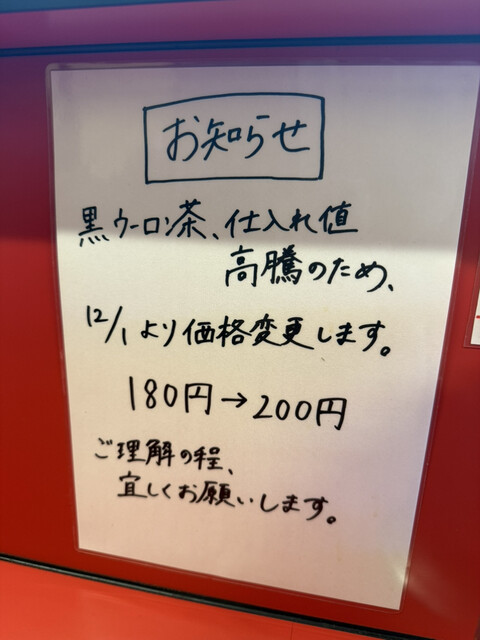 お知らせ
黒ウーロン茶、仕入れ値
高騰のため、
12/1より価格変更します。
180円→200円
ご理解の程、
宜しくお願いします。